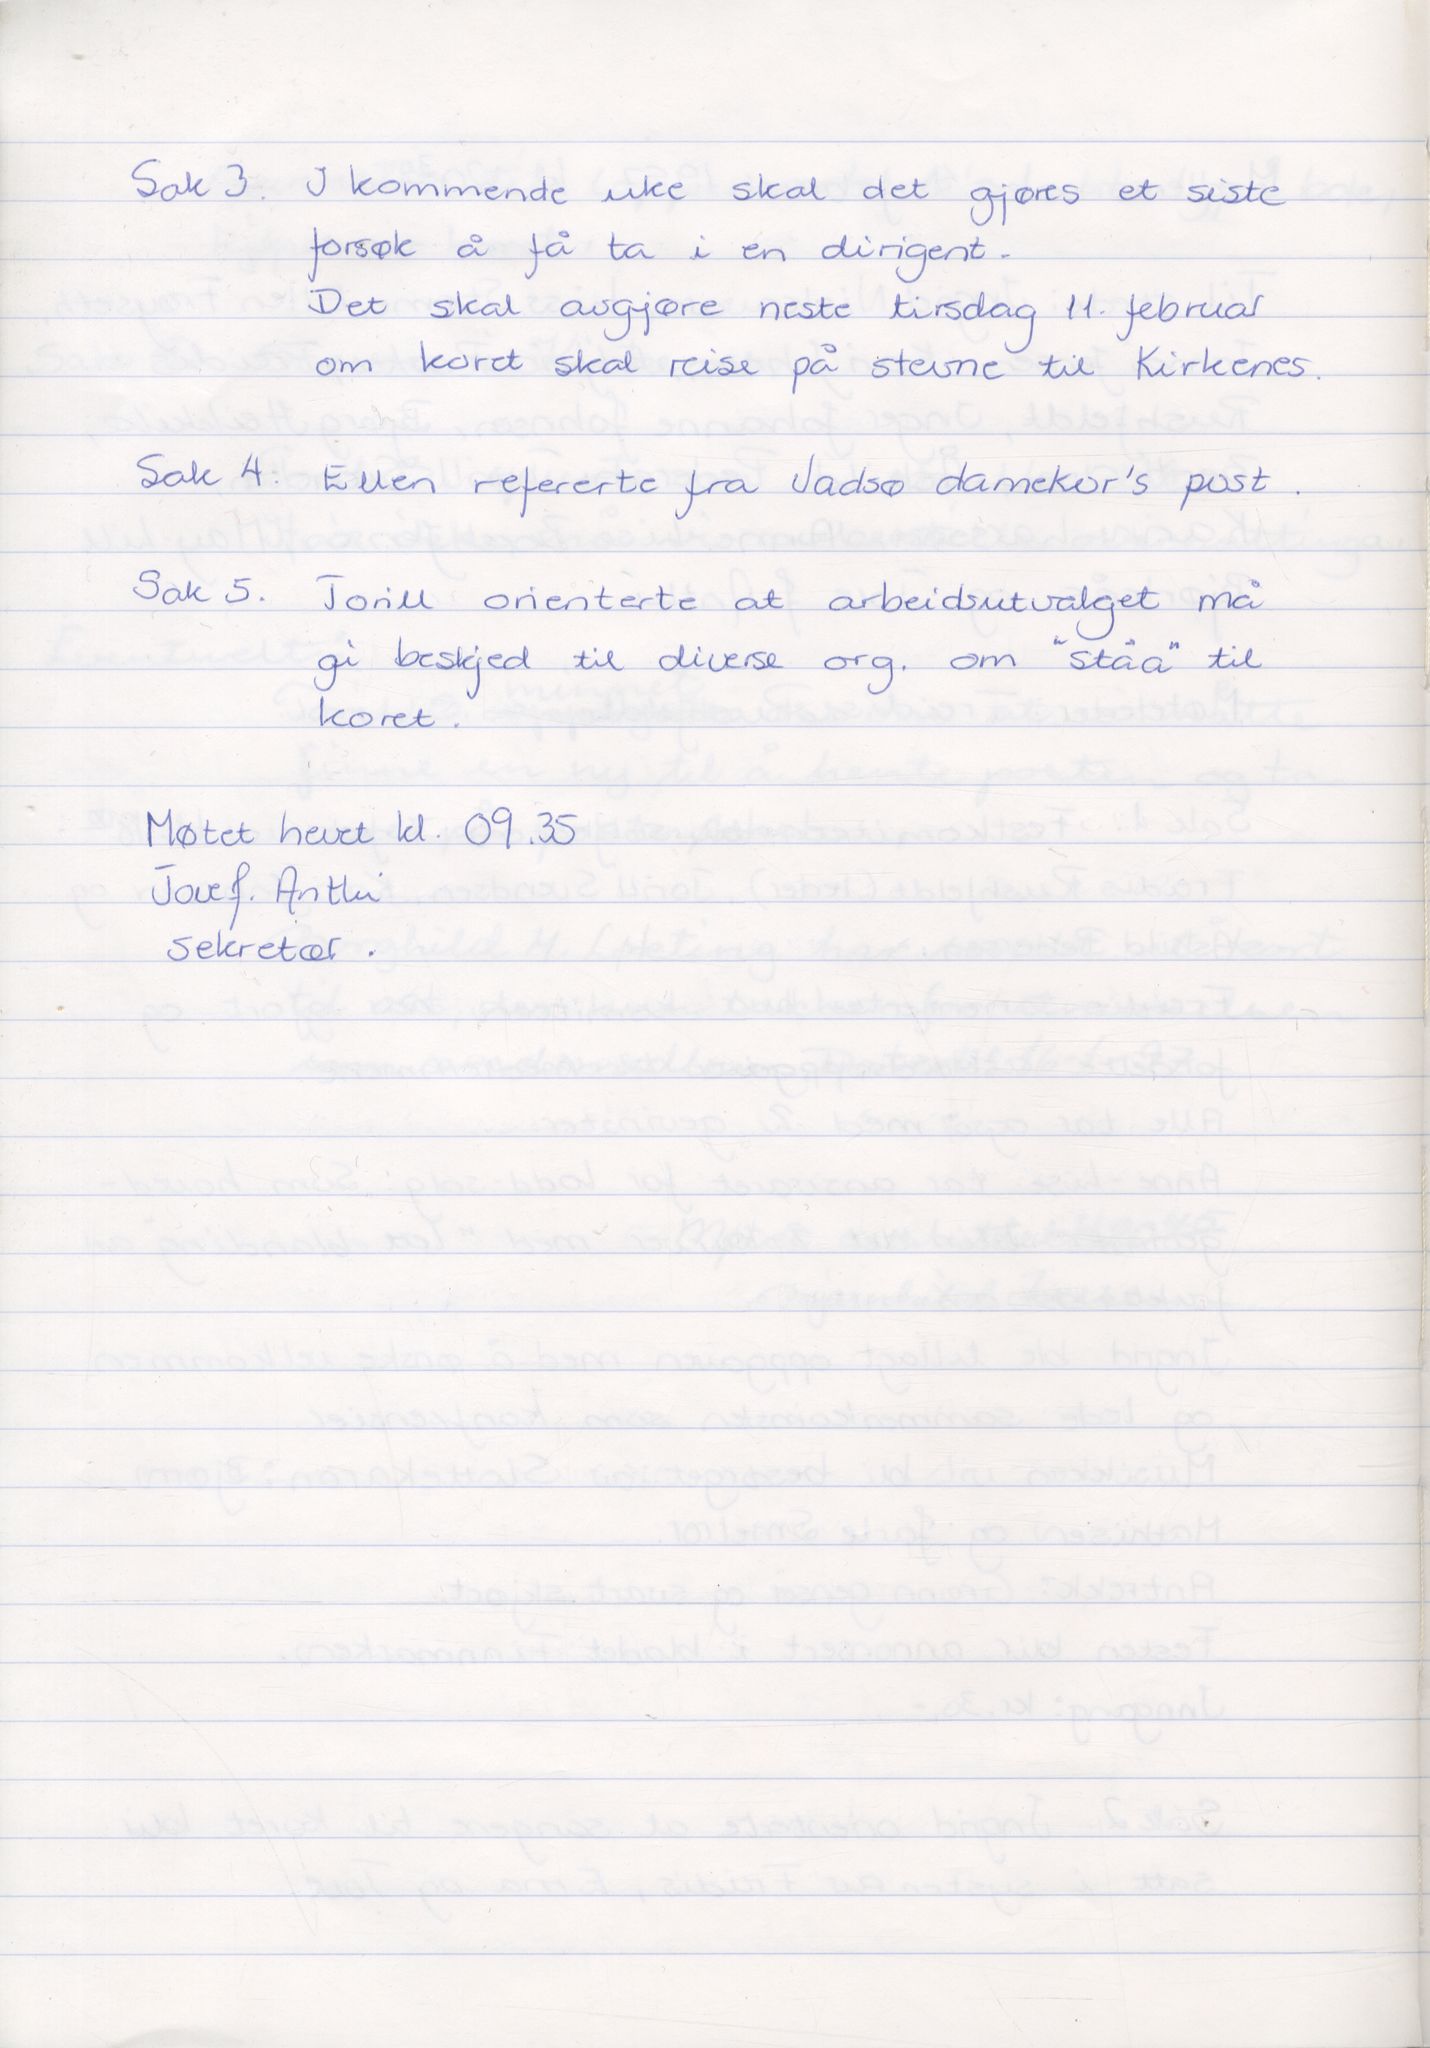 Sak 3. I kommende uke skal det gjøres et siste
forsøk å få ta i en dirigent.
Det skal avgjøre neste tirsdag 11. februar
om koret skal reise på stevne til Kirkenes.
Sak 4: Ellen refererte fra Vadsø damekor's post.
Sak 5. Torill orienterte at arbeidsutvalget må
gi beskjed til diverse org. om "ståa" til
koret.
Møtet hevet kl. 09.35
Antti
sekretær.